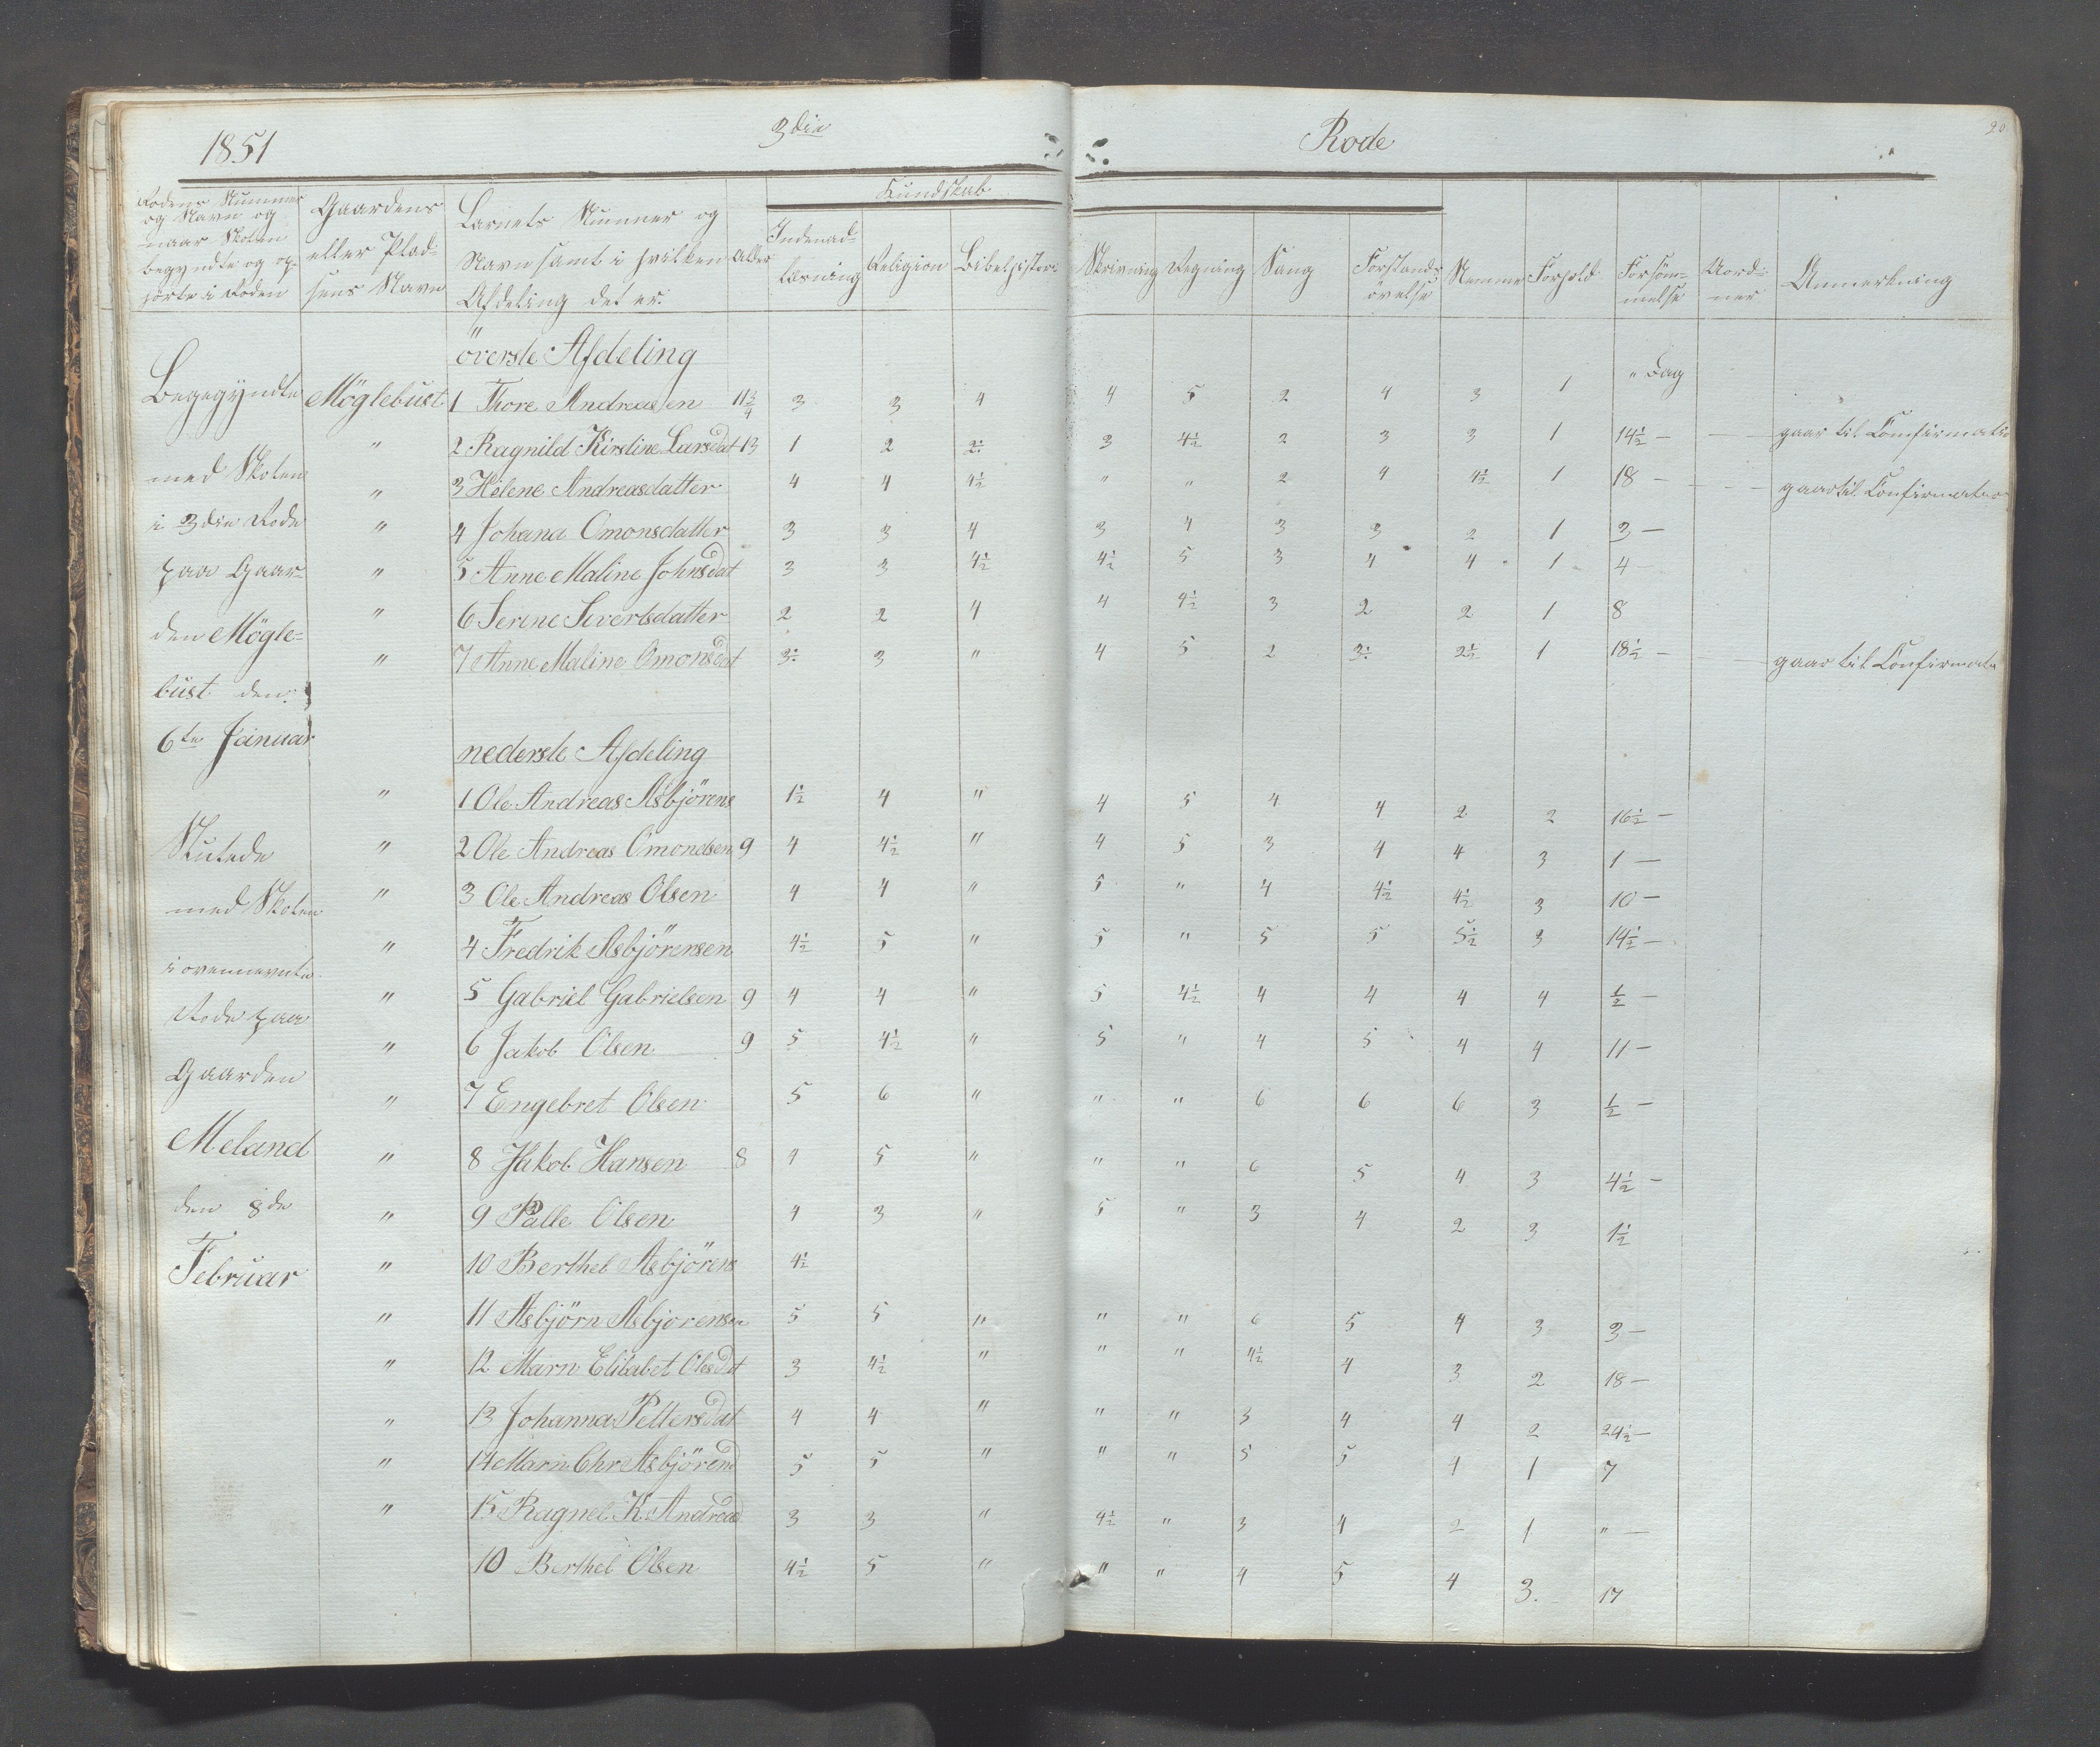 1851 3die Rode 20
Rodens Nummer og Navn og naar Skolen begyndte og ophörte i Roden
Gaardens eller Pladsens Navn
Barnets Nummer og Navn samt i hvilken Afdeling det er.
Alder
Kundskab
Indenadlæsning Religion Bibelhistorie Skrivning Regning Sang Forstandsövelse Nemme Forhold Forsömmelse Uordner Anmerkning
överste Afdeling
" Dag
Begegÿndte Möglebust 1 Thore Andreassen 11 3/4 3 3 4 4 5 2 4 3 1
" 2 Ragnild Kirstine Larsdat 13 1 2 2 3 4½ 2 3 3 1 14½ — — gaar til Comfirmatio
med Skolen " 3 Helene Andreasdatter 4 4 4½ " " 2 4 4½ 1 18 — — gaar til Confirmatio
i 3die Rode " 4 Johana Omonsdatter 3 3 4 3 4 3 3 2 1 3 —
paa Gaar- " 5 Anne Maline Johnsdat 3 3 4½ 4½ 5 3 4 4 1 4 —
" 6 Serine Sivertsdatter 2 2 4 4 4½ 3 2 2 1 8
den Mögle- " 7 Anne Maline Omonsdat 3 " 4 5 2 2½ 1 18½ — — gaar til Confirmatio
bust den
6te Januar
nederste Afdeling
" 1 Ole Andreas Asbjörens 1½ 4 " 4 5 4 4 2 2 16½ —
Slutede " 2 Ole Andreas Omondsen 9 4 4½ " 4 5 3 4 4 3 1 —
med Skolen " 3 Ole Andreas Olsen 4 4 " 5 " 4 4½ 4½ 3 10 —
" 4 Fredrik Asbjörensen 4½ 5 " 5 " 5 5 5½ 3 14½ —
i ovennevnte
" 5 Gabriel Gabrielsen 9 4 4 " 5 4½ 4 4 4 4 ½ —
Rode paa
" 6 Jakob Olsen 9 5 4½ " 5 " 4 5 4 4 11 —
Gaarden
" 7 Engebret Olsen 5 6 " " " 6 6 6 3 ½ —
Meland
" 8 Jakob Hansen 8 4 5 " " " 6 5 4 3 4½ —
den 8de " 9 Palle Olsen 4 3 " 5 " 3 4 2 3 1½
Februar " 10 Berthel Asbjörens 4½
" 11 Asbjörn Asbjorensen 5 5 " " " 6 5 4 3 3 —
" 12 Marn Elisabet Olsdat 3 4½ " " " 4½ 4 3 2 18 —
" 13 Johanna Pettersdat 4 4 " " " 3 4 4 2 24½ —
" 14 Marn Chr Asbjörend 5 5 " " " 5 5 4 1 7
" 15 Ragnel K. Andread 3 3 " 4½ " 3 4 2 1 " —
10 Berthel Olsen 4½ 5 " " " 4 5 4 3. 17